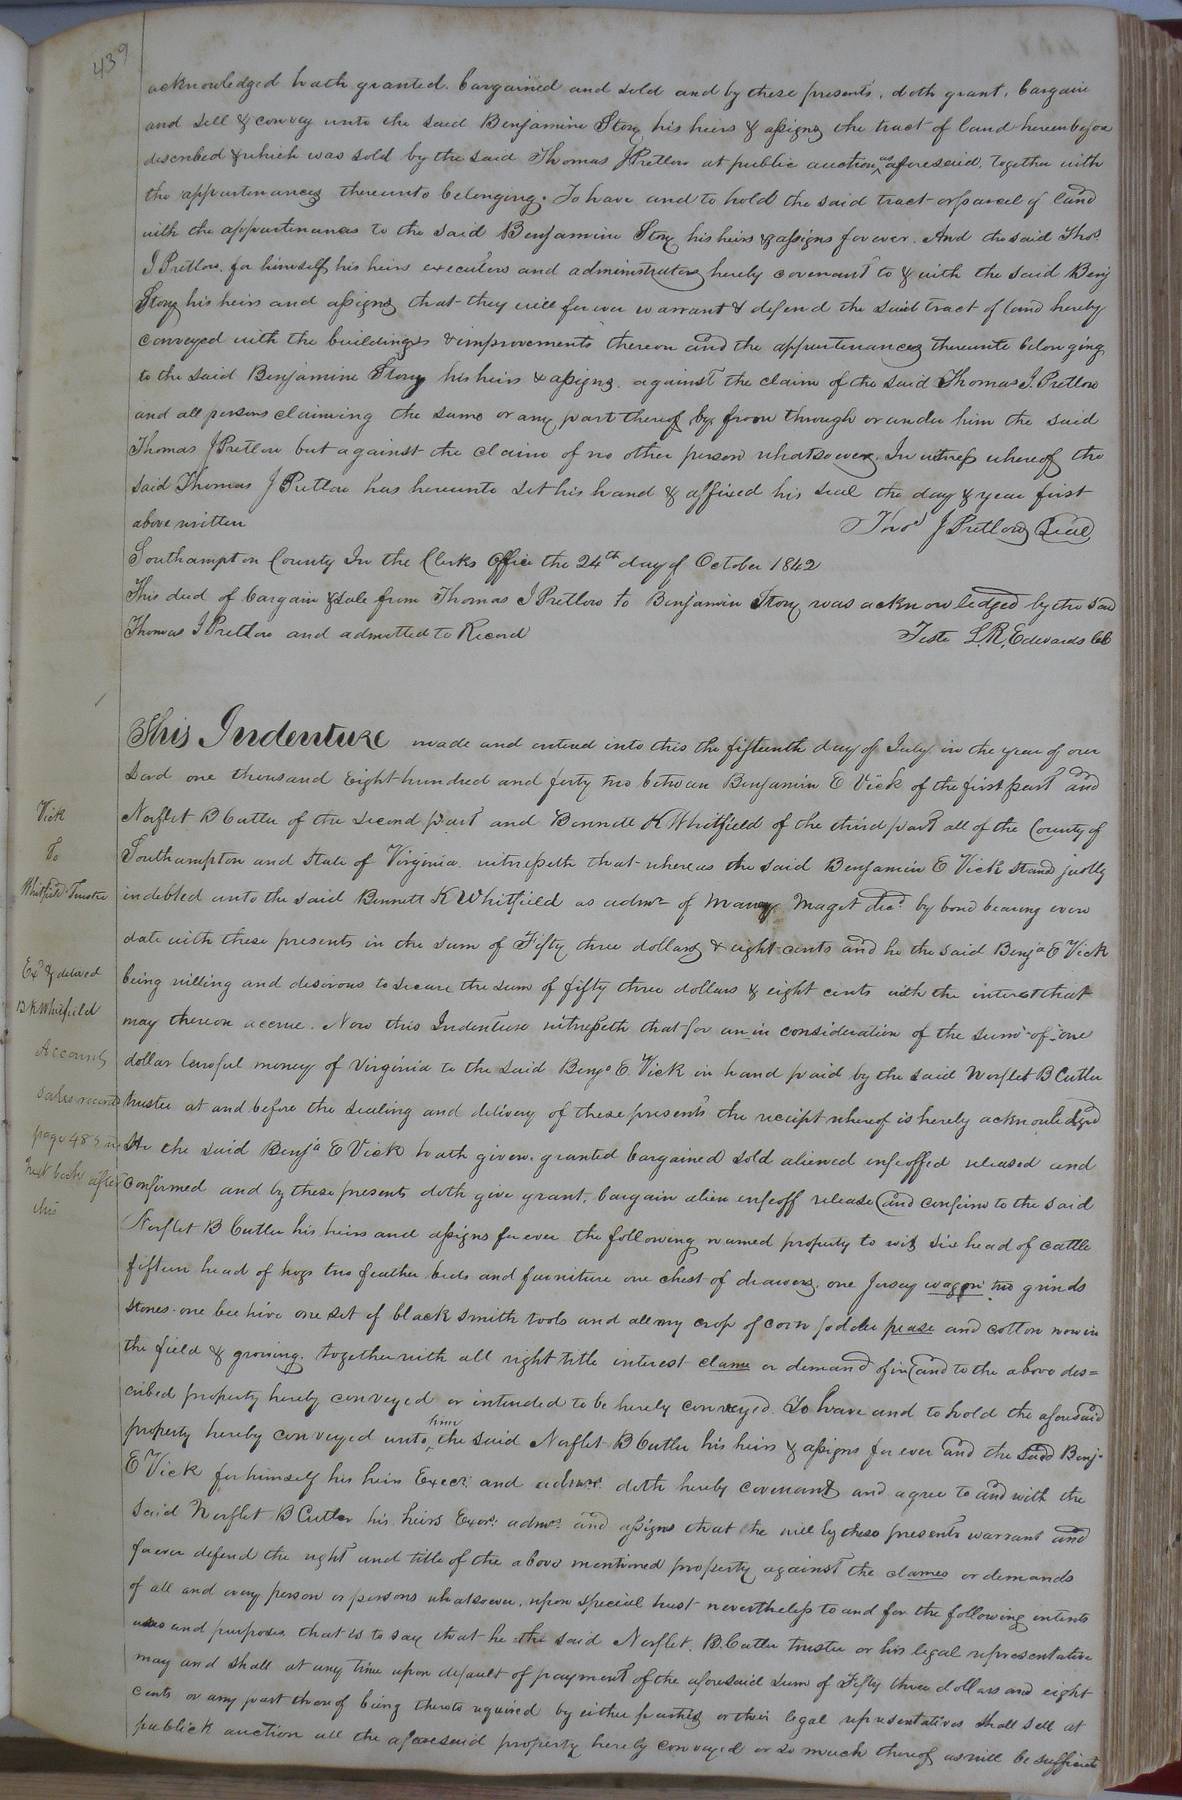 439
acknowledged hath granted. bargained and sold and by these presents, doth grant, bargain
and sell & convey unto the said Benjamine Story his heirs & assigns the tract of land herein before
described & which was sold by the said Thomas J Pretlow at public auction as aforesaid, together with
the appurtenances thereunto belonging. To have and to hold the said tract or parcel of land
with the appurtenances to the said Benjamine Story his heirs & assigns forever. And the said Thos
J Pretlow for himself his heirs executors and administrators hereby covenant to & with the said Benj
Story his heirs and assigns that they will forever warrant & defend the said tract of land hereby
conveyed with the buildings & improvements thereon and the appurtenances thereunto belonging
to the said Benjamine Story his heirs & assigns. against the claim of the said Thomas J. Pretlow
and all persons claiming the same or any part thereof by, from through or under him the said
Thomas J Pretlow but against the claim of no other person whatsoever. In witness whereof the
said Thomas J Pretlow has hereunto set his hand & affixed his seal the day & year first
above written
Thos J Pretlow Seal
Southampton County In the Clerks Office the 24th day of October 1842
This deed of bargain & sale from Thomas J Pretlow to Benjamin Story was acknowledged by the said
Thomas J Pretlow and admitted to Record
Teste L. R. Edwards CC
This Indenture made and entered into this the fifteenth day of July in the year of our
Lord one thousand Eight hundred and forty two between Benjamin E Vick of the first part and
Norflet B Cutler of the second part and Bennett K Whitfield of the third part all of the County of
Southampton and State of Virginia. witnesseth that whereas the said Benjamin E Vick stand justly
indebted unto the said Bennett K Whitfield as admr of Maget decd by bond bearing even
date with these presents in the sum of Fifty three dollars & eight cents and he the said Benja E Vick
being willing and desirous to secure the sum of fifty three dollars & eight cents with the interest that
may thereon accrue. Now this Indenture witnesseth that for an in consideration of the sum of one
dollar lawful money of Virginia to the said Benja E. Vick in hand paid by the said Norflet B Cutler
trustee at and before the sealing and delivery of these presents the receipt whereof is hereby acknowledged
He the said Benja E Vick hath given granted bargained sold aliened enfeoffed released and
confirmed and by these presents doth give grant, bargain alien enfeoff release and confirm to the said
Norflet B Cutler his heirs and assigns forever the following named property to wit, six head of cattle
fifteen head of hogs two feather beds and furniture one chest of drawers, one Jersey wagon two grind
stones one bee hive one set of black smith tools and all my crop of corn fodder pease and cotton now in
the field & growing. together with all right title interest clame or demand of in and to the above des=
cribed property hereby conveyed or intended to be hereby conveyed. To have and to hold the aforesaid
property hereby conveyed unto him the said Norflet B Cutler his heirs & assigns forever and the said Benj
E Vick for himself his heirs Execr. and admrs. doth hereby covenant and agree to and with the
said Norflet B Cutler his heirs Exors. admrs. and assigns that he will by these presents warrant and
forever defend the right and title of the above mentioned property against the clames or demands
of all and every person or persons whatsoever, upon special trust nevertheless to and for the following intents
uses and purposes that is to say that he the said Norflet. B. Cutler trustee or his legal representative
may and shall at any time upon default of payment of the aforesaid sum of Fifty three dollars and eight
cents or any part thereof being thereto required by either parties or their legal representatives shall sell at
publick auction all the aforesaid property hereby conveyed or so much thereof as will be sufficient
Vick
To
Whitfield Trustee
Exd & delivd
B K Whitfield
Account
sales record
page 485 in
next book after
this